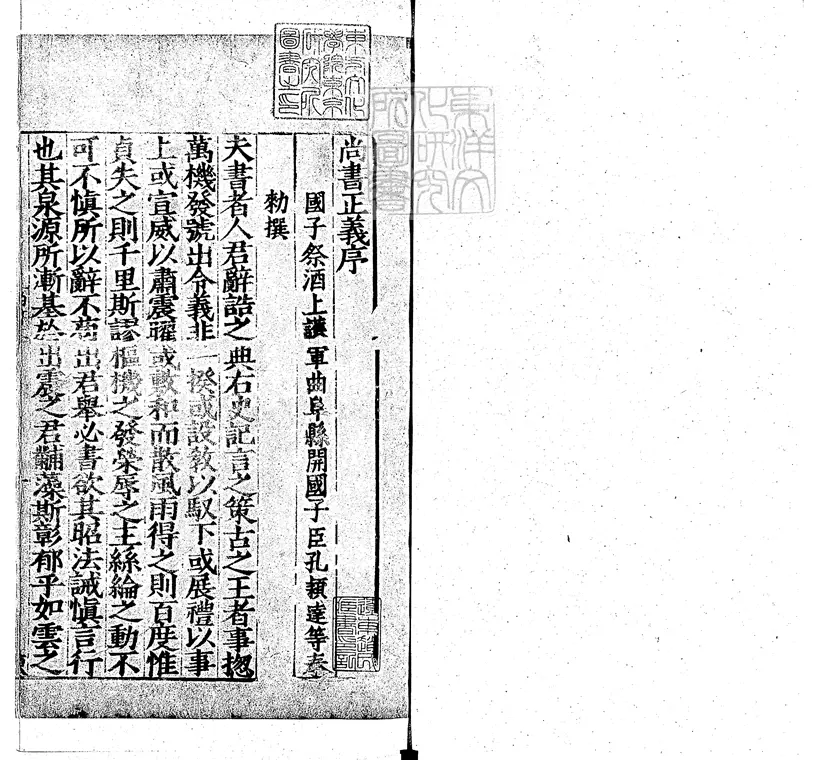 尚書正義序
國子祭酒上護軍曲阜縣開國子臣孔穎達等奉
勑撰
夫書者人君辭誥之典右史記言之策古之王者事揔
萬機發號出令義非一揆或設敎以馭下或展禮以事
上或宣威以肅震曜或敷和而散風雨得之則百度惟
貞失之則千里斯謬樞機之發榮辱之主絲綸之動不
可不愼所以辭不苟出君舉必書欲其昭法誡愼言行
也其泉源所漸基於出震之君黼藻斯彰郁乎如雲之
東方文化學院東京研究所圖書之印
東洋文化研究所圖書